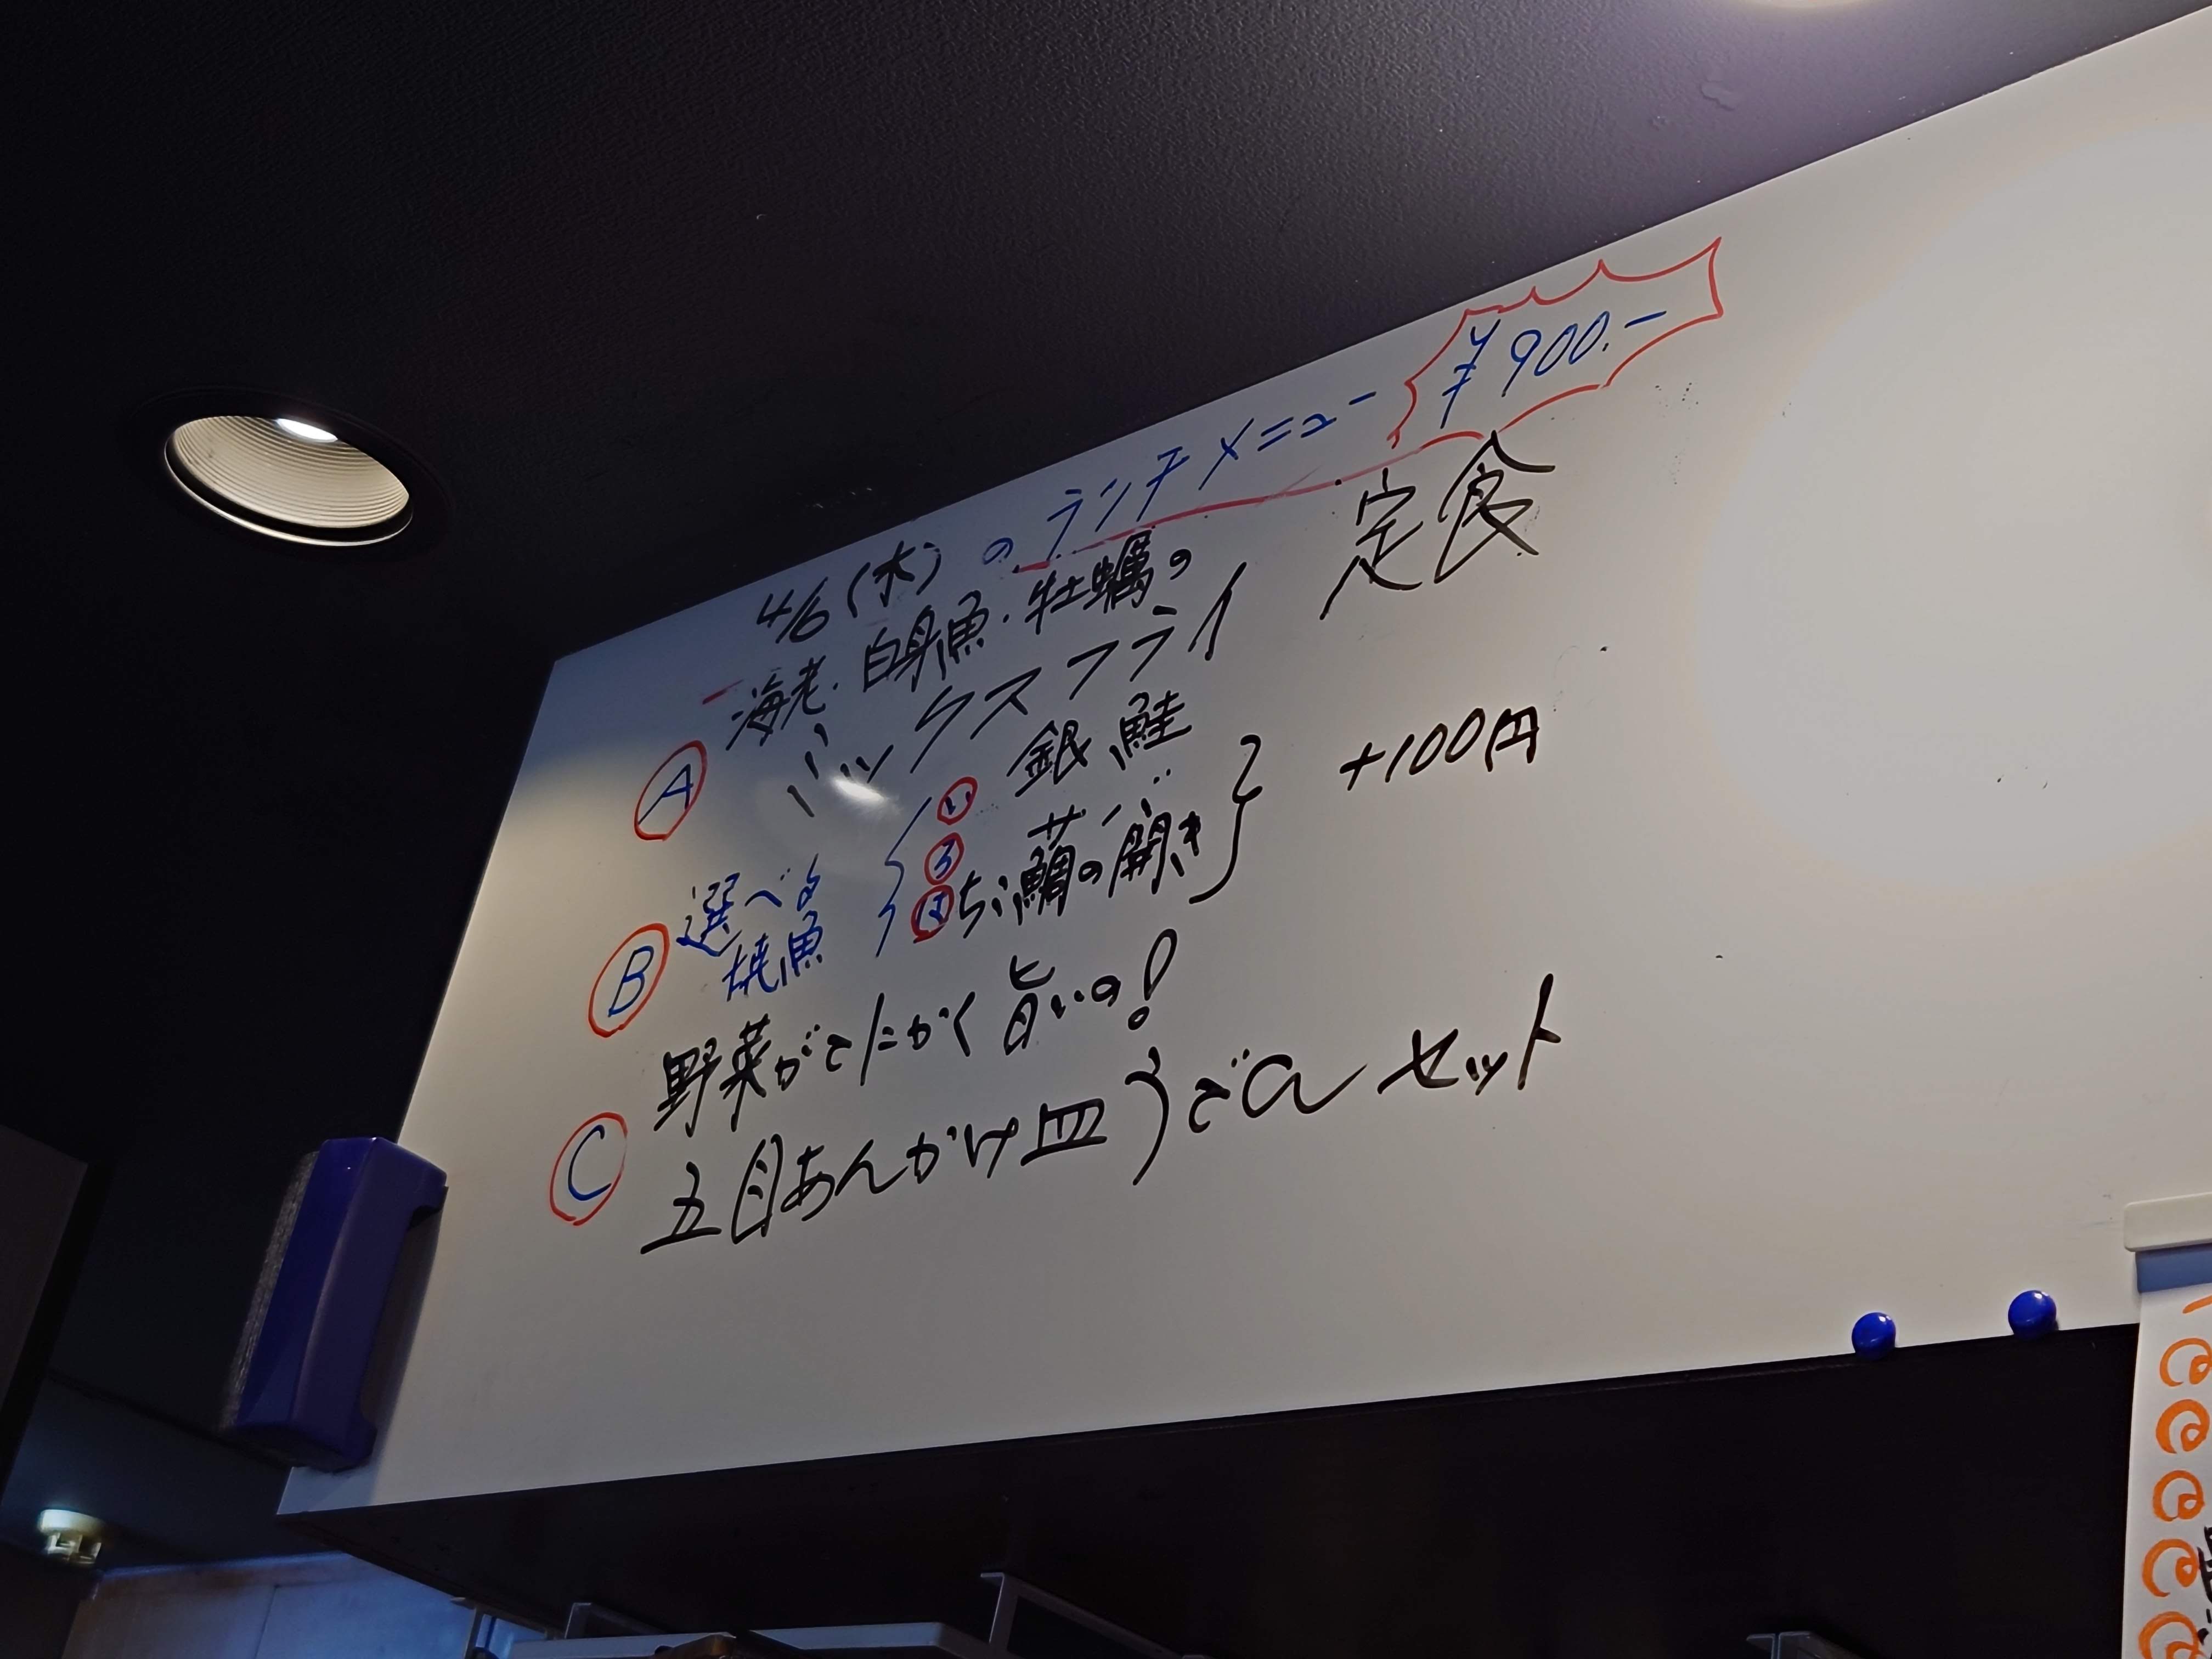 4/6(水)のランチメニュー ¥900.-
Ⓐ 海老・白身魚・牡蠣の
ミックスフライ 定食
Ⓑ 選べる
焼魚
い 銀鮭
ろ サバ
は ちび鯛の開き
+100円
Ⓒ 野菜がとにかく旨いの!
五目あんかけ皿うどんセット